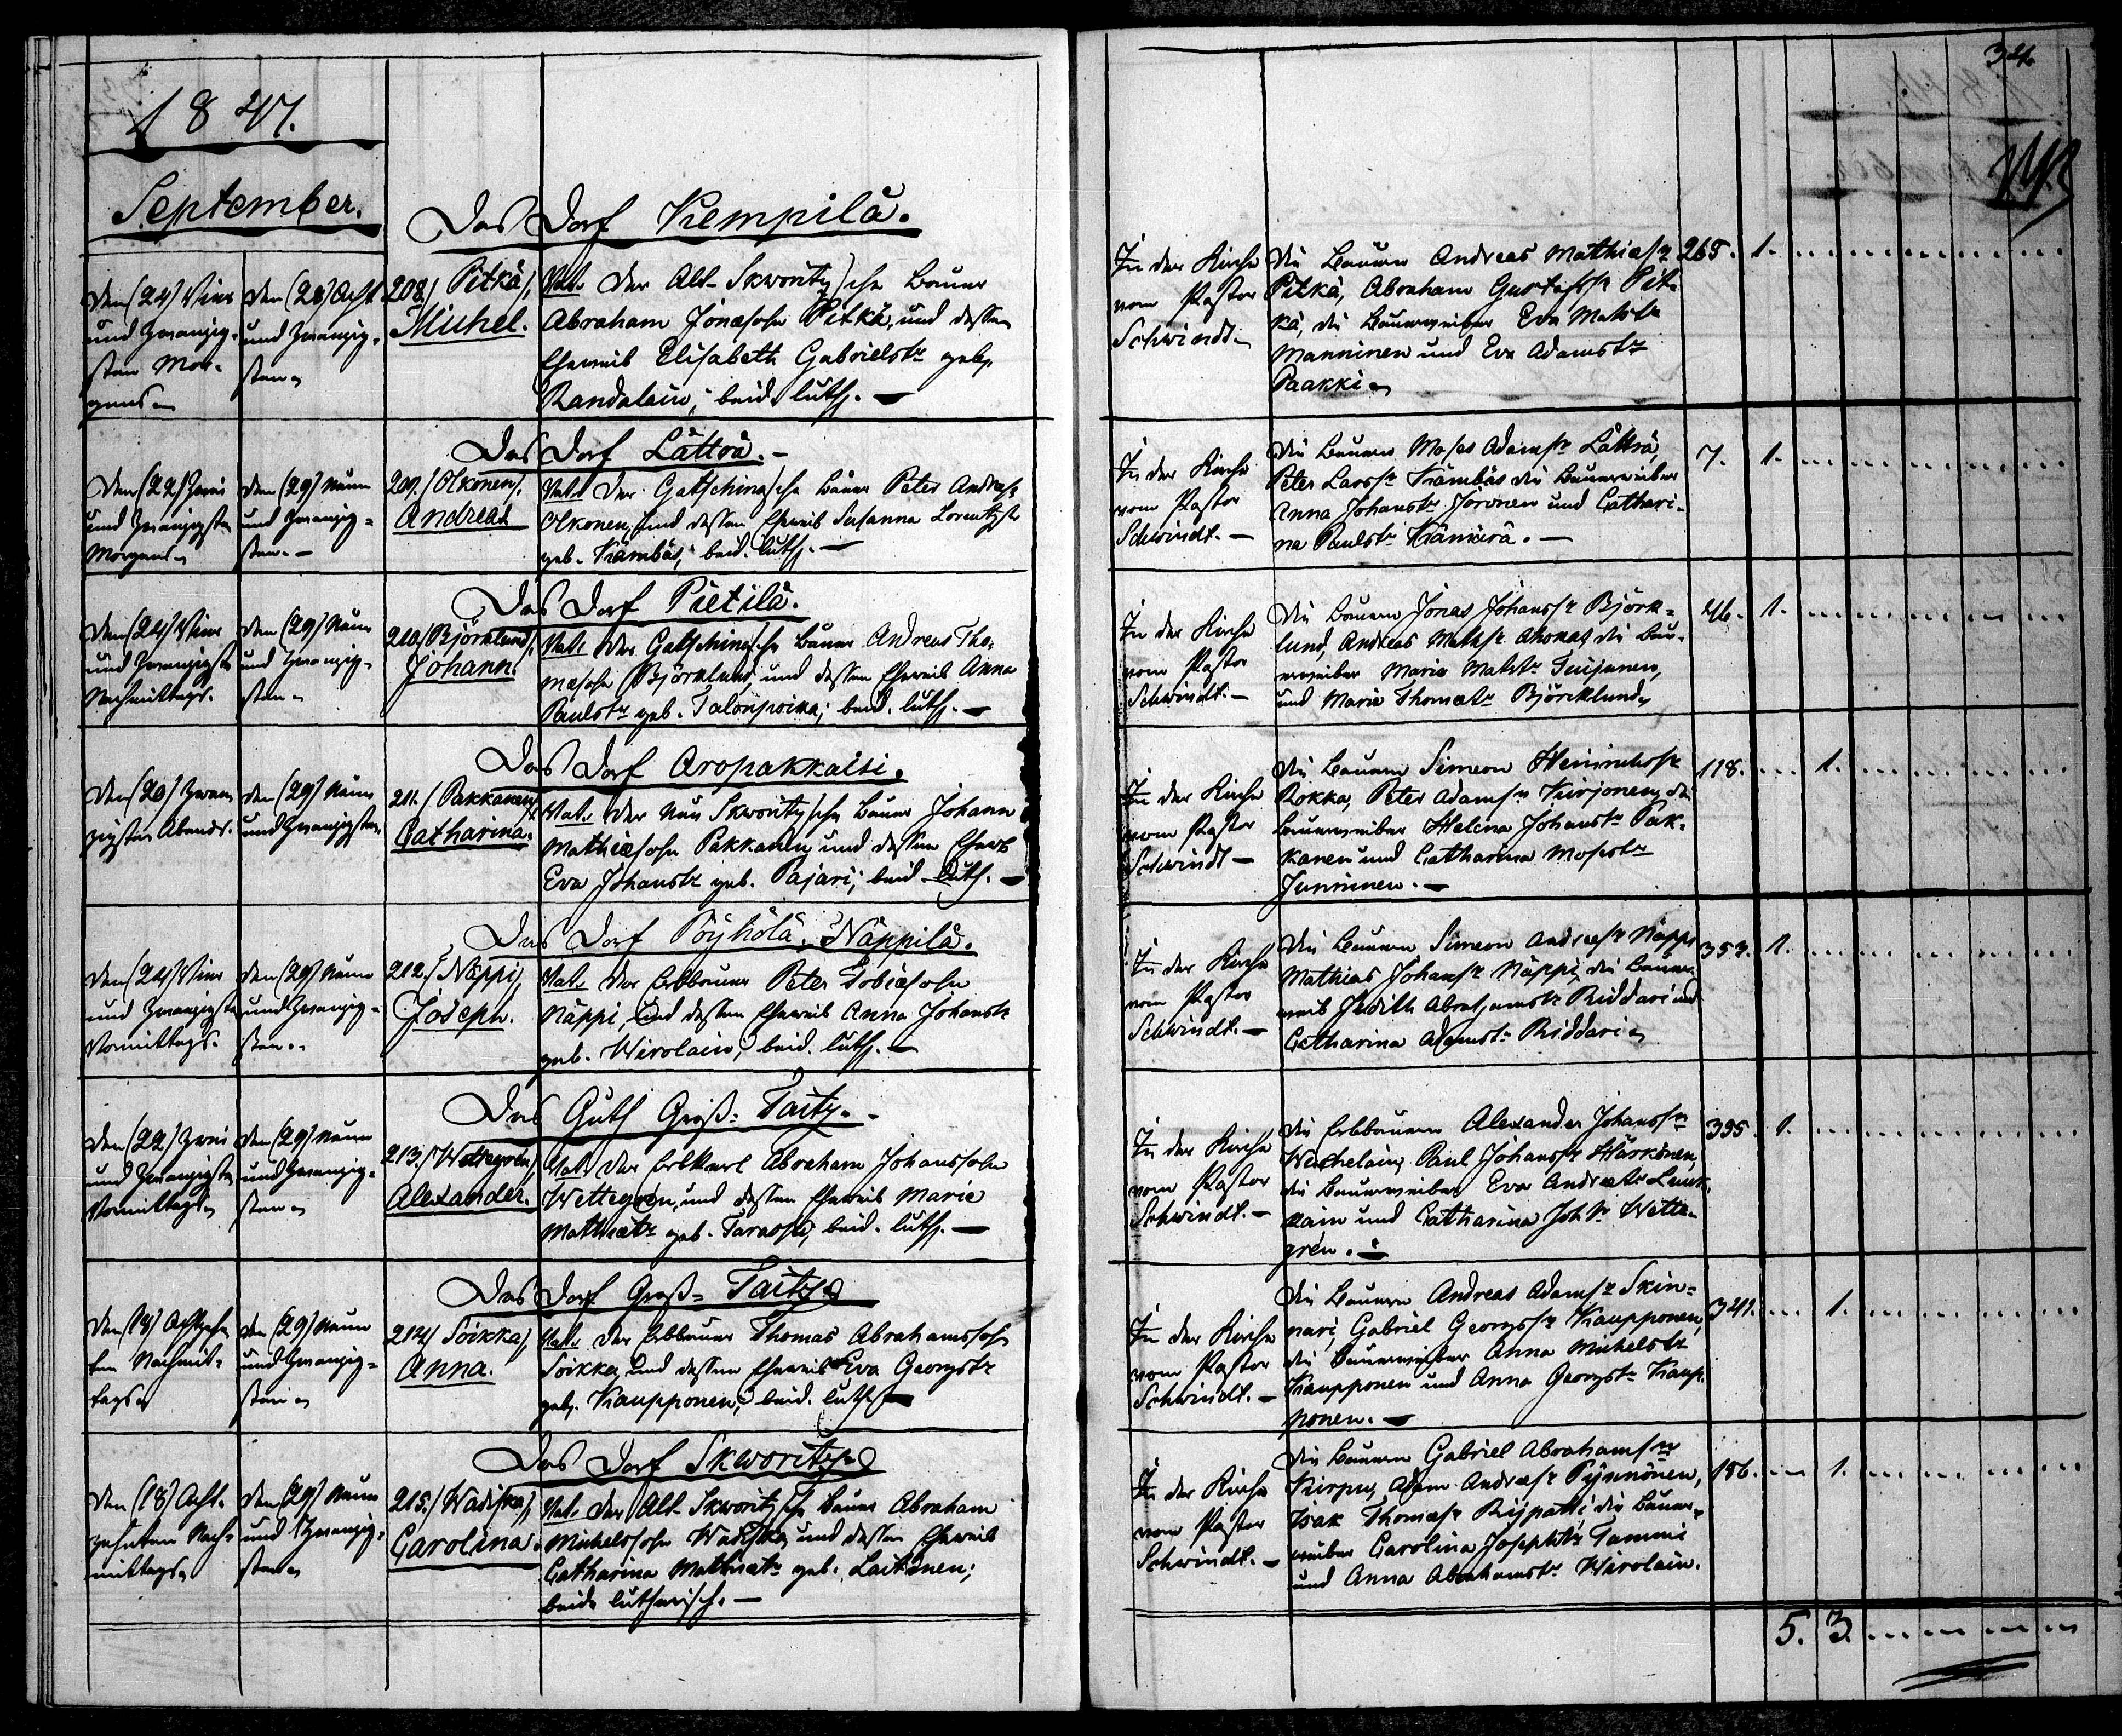 1847.
September.
Das Dorf Kempilä.
Den (24) Vier
und zwanzig-
sten Mor-
gens
Den (28) Acht
und zwanzig-
sten
208./ Pitkä/,
Michel.
Vat. Der Alt-Skworitzsche Bauer
Abraham Jonassohn Pitkä, und dessen
Eheweib Elisabeth Gabrielstr geb.
Randalain; beid. luth. —
Das Dorf Lättvä. —
Den (22) Zwei
und Zwanzigsten
Morgens
Den (29) Neun
und zwanzig-
sten. —
209./ Olkonen/,
Andreas
Vat. Der Gatschinasche Bauer Peter Andreass.
Olkonen, und dessen Eheweib Susanna Lorentzstr
geb. Kämbäs; beid. luth. —
Das Dorf Pietilä.
Den (24) Vier
und Zwanzigsten
Nachmittags.
Den (29) Neun
und Zwanzig-
sten
210/ Björklund/,
Johann.
Vat. Der Gatschinasche Bauer Andreas Tho-
massohn Björklund, und dessen Eheweib Anna
Paulstr geb. Talonpoika; beid. luth. —
Das Dorf Aropakkaisi.
Den (20) Zwan-
zigsten Abends.
Den (29) Neun
und Zwanzigsten
211./ Pakkanen/
Catharina.
Vat. Der Neu Skworitzsche Bauer Johann
Mathiassohn Pakkanen, und dessen Eheweib
Eva Johanstr geb. Pajari; beid. luth. —
Das Dorf Pöyhölä. Näppilä.
Den (24) Vier
und Zwanzigsten
Vormittags.
Den (29) Neun
und Zwanzig-
sten.
212./ Näppi/,
Joseph.
Vat. Der Erbbauer Peter Tobiassohn
Näppi, und dessen Eheweib Anna Johanstr
geb. Wirolain; beid. luth. —
Das Guth Groß-Taitz. -
Den (22) Zwei
und Zwanzigsten
Vormittags
Den (29) Neun
und Zwanzig-
sten
213./ Wettegren/
Alexander.
Vat. Der Erbkerl Abraham Johanssohn
Wettegren, und dessen Eheweib Maria
Mathiastr geb. ; beid. luth. —
Das Dorf Groß-Taitz.
Den (18) Achtzehn-
ten Nachmit-
tags
Den (29) Neun
und Zwanzig-
sten
214/ Soikka/,
Anna.
Vat. Der Erbbauer Thomas Abrahamssohn
Soikka, und dessen Eheweib Eva Georgstr
geb. Kaupponen; beid. luth. —
Das Dorf Skworitz.
Den (18) Acht-
zehnten Nach-
mittags
Den (29) Neun
und Zwanzig-
sten
215./ /,
Carolina.
Vat. Der Alt-Skworitzsche Bauer Abraham
Michelssohn und dessen Eheweib
Catharina Mathiastr geb. Laitinen;
beide lutherisch. —
34.
In der Kirche
vom Pastor
Schwindt
Die Bauern Andreas Mathiassn
Pitkä, Abraham Gustafssn Pit-
kä, die Bauerweiber Eva Matstr
Manninen und Eva Adamstr
Paakki
265. 1.
In der Kirche
vom Pastor
Schwindt. —
Die Bauern Moses Adamsn Lättvä,
Peter Larssn Kämbäs die Bauerweiber
Anna Johanstr und Cathari-
na Paulstr Kämärä. —
7. 1.
In der Kirche
vom Pastor
Schwindt. —
Die Bauern Jonas Johanssn Björk-
lund, Andreas Matssn Ahonas, die Bau-
erweiber Maria Matstr
und Maria Thomastr Björcklund
46. 1.
In der Kirche
vom Pastor
Schwindt —
Die Bauern Simeon Heinrichssn
Rokka, Peter Adamsn Kirjonen, die
Bauerweiber Helena Johanstr Pak-
kanen und Catharina Mosestr
Junninen. —
118. 1.
In der Kirche
vom Pastor
Schwindt. —
Die Bauern Simeon Andreassn Näppi
Mathias Johanssn Näppi, die Bauer-
weib Judith Abrahamstr Riddari und
Catharina Adamstr Riddari
353. 1.
In der Kirche
vom Pastor
Schwindt. —
Die Erbbauern Alexander Johanssn
Paul Johanssn Härkönen,
die Bauerweiber Eva Andreastr
und Catharina Johstr Wette-
gren. —
395. 1.
In der Kirche
vom Pastor
Schwindt. —
Die Bauern Andreas Adamsn Skin-
nari, Gabriel Georgssn Kaupponen,
die Bauerweiber Anna Michelstr
Kaupponen und Anna Georgstr Kaup-
ponen. —
341. 1.
In der Kirche
vom Pastor
Schwindt. —
Die Bauern Gabriel Abrahamsn
Kirpu, Adam Andreassn Pynnönen,
Isak Thomassn , die Bauer-
weiber Carolina Josephstr Tammi
und Anna Abrahamstr Wirolain.
186. 1.
5. 3.